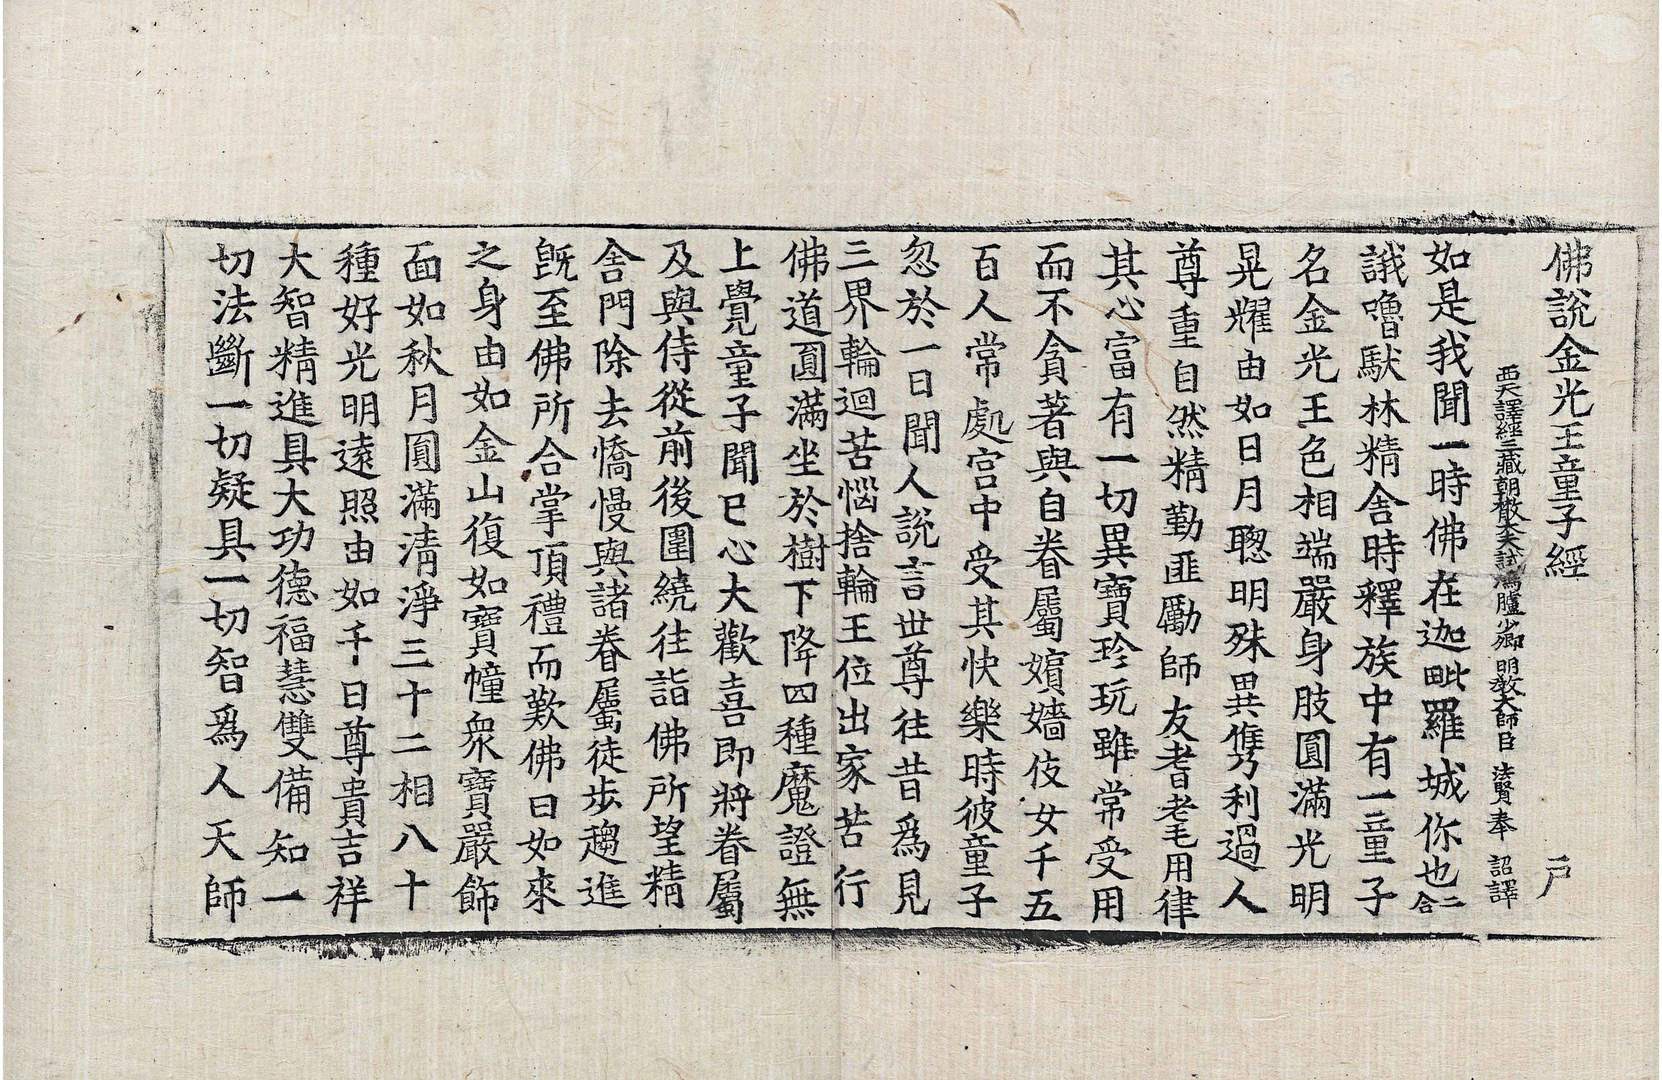 佛說金光王童子經 戶
西天譯經三藏朝散大夫試鴻臚少卿明教大師臣法賢奉 詔譯
如是我聞一時佛在迦毗羅城你也二合
誐嚕馱林精舍時釋族中有一童子
名金光王色相端嚴身肢圓滿光明
晃耀由如日月聦明殊異儁利過人
尊重自然精勤匪勵師友耆老毛用律
其心富有一切異寶珍玩雖常受用
而不貪著與自眷屬嬪嬙伎女千五
百人常處宮中受其快樂時彼童子
忽於一日聞人說言世尊往昔爲見
三界輪迴苦惱捨輪王位出家苦行
佛道圓滿坐於樹下降四種魔證無
上覺童子聞已心大歡喜即將眷屬
及與侍從前後圍繞往詣佛所望精
舍門除去憍慢與諸眷屬徒步趨進
旣至佛所合掌頂禮而歎佛曰如來
之身由如金山復如寶幢衆寶嚴飾
面如秋月圓滿清淨三十二相八十
種好光明遠照由如千日尊貴吉祥
大智精進具大功德福慧雙備知一
切法斷一切疑具一切智爲人天師